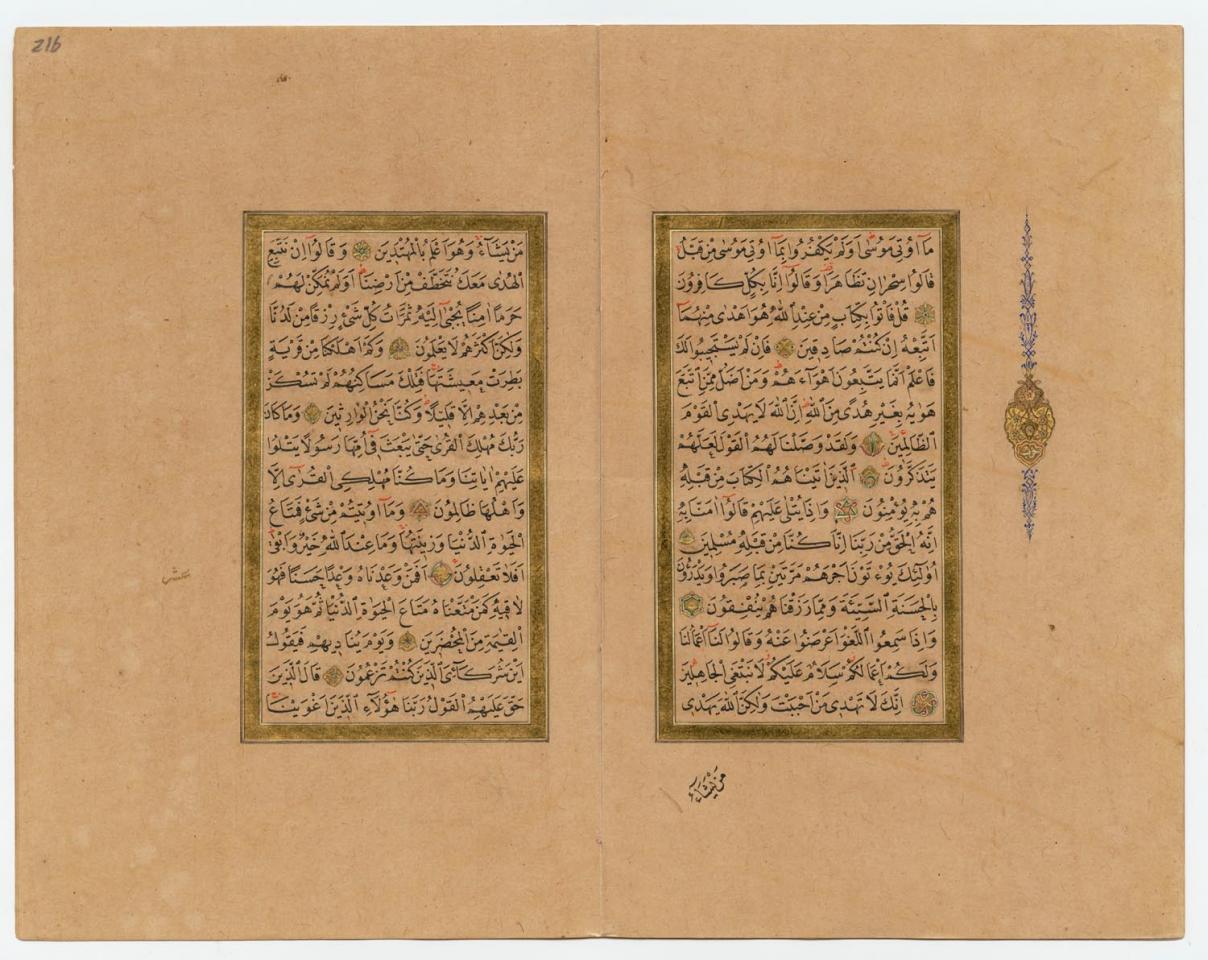 مَا اُوتِيَ مُوسٰى اَوَلَمْ يَكْفُرُوا بِمَا اُوتِيَ مُوسٰى مِنْ قَبْلُ
قَالُوا سِحْرَانِ تَظَاهَرَا وَقَالُوا اِنَّا بِكُلٍّ كَافِرُونَ
قُلْ فَأْتُوا بِكِتَابٍ مِنْ عِنْدِ اللّٰهِ هُوَ اَهْدٰى مِنْهُمَا
اَتَّبِعْهُ اِنْ كُنْتُمْ صَادِقِينَ فَاِنْ لَمْ يَسْتَجِيبُوا لَكَ
فَاعْلَمْ اَنَّمَا يَتَّبِعُونَ اَهْوَاءَهُمْ وَمَنْ اَضَلُّ مِمَّنِ اتَّبَعَ
هَوٰيهُ بِغَيْرِ هُدًى مِنَ اللّٰهِ اِنَّ اللّٰهَ لَا يَهْدِى الْقَوْمَ
الظَّالِمِينَ وَلَقَدْ وَصَّلْنَا لَهُمُ الْقَوْلَ لَعَلَّهُمْ
يَتَذَكَّرُونَ اَلَّذِينَ اٰتَيْنَاهُمُ الْكِتَابَ مِنْ قَبْلِهِ
هُمْ بِهِ يُؤْمِنُونَ وَاِذَا يُتْلٰى عَلَيْهِمْ قَالُوا اٰمَنَّا بِهِ
اِنَّهُ الْحَقُّ مِنْ رَبِّنَا اِنَّا كُنَّا مِنْ قَبْلِهِ مُسْلِمِينَ
اُولٰئِكَ يُؤْتَوْنَ اَجْرَهُمْ مَرَّتَيْنِ بِمَا صَبَرُوا وَيَدْرَؤُنَ
بِالْحَسَنَةِ السَّيِّئَةَ وَمِمَّا رَزَقْنَاهُمْ يُنْفِقُونَ
وَاِذَا سَمِعُوا اللَّغْوَ اَعْرَضُوا عَنْهُ وَقَالُوا لَنَا اَعْمَالُنَا
وَلَكُمْ اَعْمَالُكُمْ سَلَامٌ عَلَيْكُمْ لَا نَبْتَغِى الْجَاهِلِينَ
اِنَّكَ لَا تَهْدِى مَنْ اَحْبَبْتَ وَلٰكِنَّ اللّٰهَ يَهْدِى
مَنْ يَشَاءُ
216
مَنْ يَشَاءُ وَهُوَ اَعْلَمُ بِالْمُهْتَدِينَ وَقَالُوا اِنْ نَتَّبِعِ
الْهُدٰى مَعَكَ نُتَخَطَّفْ مِنْ اَرْضِنَا اَوَلَمْ نُمَكِّنْ لَهُمْ
حَرَمًا اٰمِنًا يُجْبٰى اِلَيْهِ ثَمَرَاتُ كُلِّ شَيْءٍ رِزْقًا مِنْ لَدُنَّا
وَلٰكِنَّ اَكْثَرَهُمْ لَا يَعْلَمُونَ وَكَمْ اَهْلَكْنَا مِنْ قَرْيَةٍ
بَطِرَتْ مَعِيشَتَهَا فَتِلْكَ مَسَاكِنُهُمْ لَمْ تُسْكَنْ
مِنْ بَعْدِهِمْ اِلَّا قَلِيلًا وَكُنَّا نَحْنُ الْوَارِثِينَ وَمَا كَانَ
رَبُّكَ مُهْلِكَ الْقُرٰى حَتّٰى يَبْعَثَ فِى اُمِّهَا رَسُولًا يَتْلُوا
عَلَيْهِمْ اٰيَاتِنَا وَمَا كُنَّا مُهْلِكِى الْقُرٰى اِلَّا
وَاَهْلُهَا ظَالِمُونَ وَمَا اُوتِيتُمْ مِنْ شَيْءٍ فَمَتَاعُ
الْحَيٰوةِ الدُّنْيَا وَزِينَتُهَا وَمَا عِنْدَ اللّٰهِ خَيْرٌ وَاَبْقٰى
اَفَلَا تَعْقِلُونَ اَفَمَنْ وَعَدْنَاهُ وَعْدًا حَسَنًا فَهُوَ
لَاقِيهِ كَمَنْ مَتَّعْنَاهُ مَتَاعَ الْحَيٰوةِ الدُّنْيَا ثُمَّ هُوَ يَوْمَ
الْقِيٰمَةِ مِنَ الْمُحْضَرِينَ وَيَوْمَ يُنَادِيهِمْ فَيَقُولُ
اَيْنَ شُرَكَائِىَ الَّذِينَ كُنْتُمْ تَزْعُمُونَ قَالَ الَّذِينَ
حَقَّ عَلَيْهِمُ الْقَوْلُ رَبَّنَا هٰؤُلَاءِ الَّذِينَ اَغْوَيْنَا
عشر